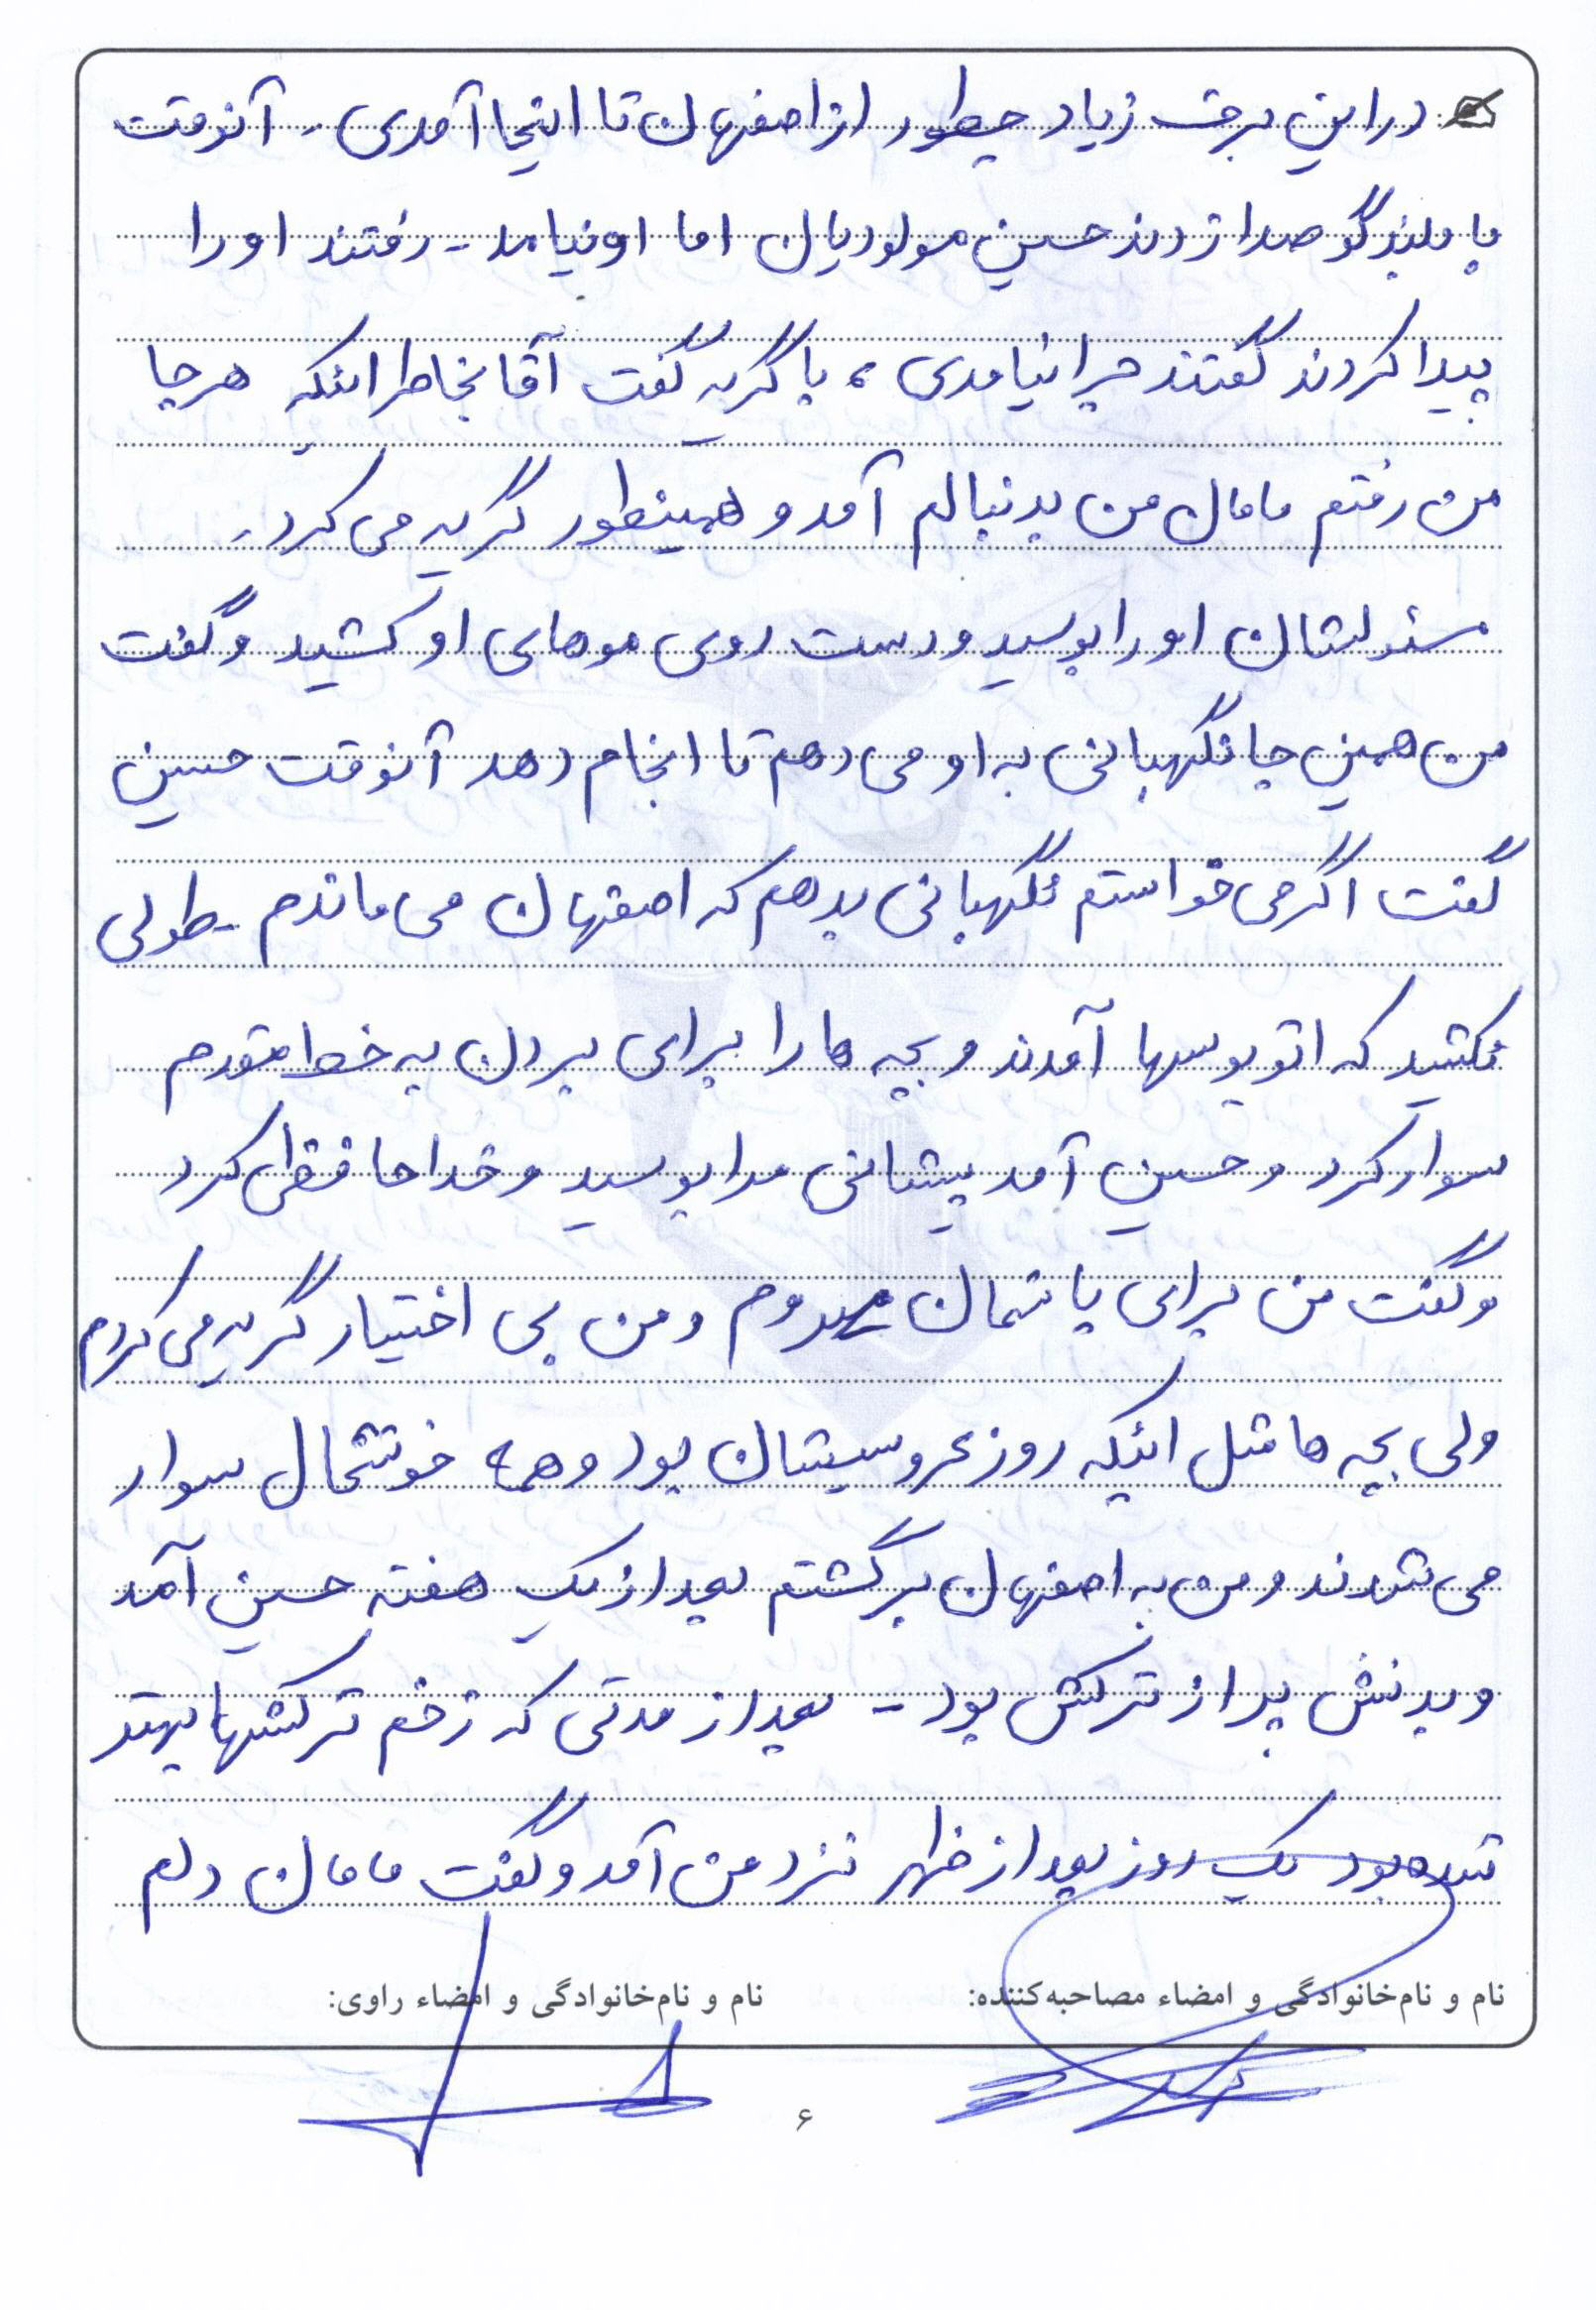 در این برف زیاد چطور از اصفهان تا اینجا آمدی - آنوقت
با بلندگو صدا زدند حسین مولودیان اما او نیامد - رفتند او را
پیدا کردند گفتند چرا نیامدی ، با گریه گفت آقا بخاطر اینکه هر جا
من رفتم مامان من بدنبالم آمد و همینطور گریه می کرد .
مسئولشان او را بوسید و دست روی موهای او کشید و گفت
من همین جا نگهبانی به او می دهم تا انجام دهد آنوقت حسین
گفت اگر می خواستم نگهبانی بدهم که اصفهان می ماندم - طولی
نکشید که اتوبوسها آمدند و بچه ها را برای بردن به خط مقدم
سوار کرد و حسین آمد پیشانی مرا بوسید و خداحافظی کرد
و گفت من برای پانسمان میروم و من بی اختیار گریه می کردم
ولی بچه ها مثل اینکه روز عروسیشان بود و همه خوشحال سوار
می شدند و من به اصفهان برگشتم بعد از یک هفته حسین آمد
و بدنش پر از ترکش بود - بعد از مدتی که زخم ترکشها بهتر
شده بود یک روز بعد از ظهر نزد من آمد و گفت مامان دلم
نام و نام‌خانوادگی و امضاء مصاحبه‌کننده: نام و نام‌خانوادگی و امضاء راوی:
۶